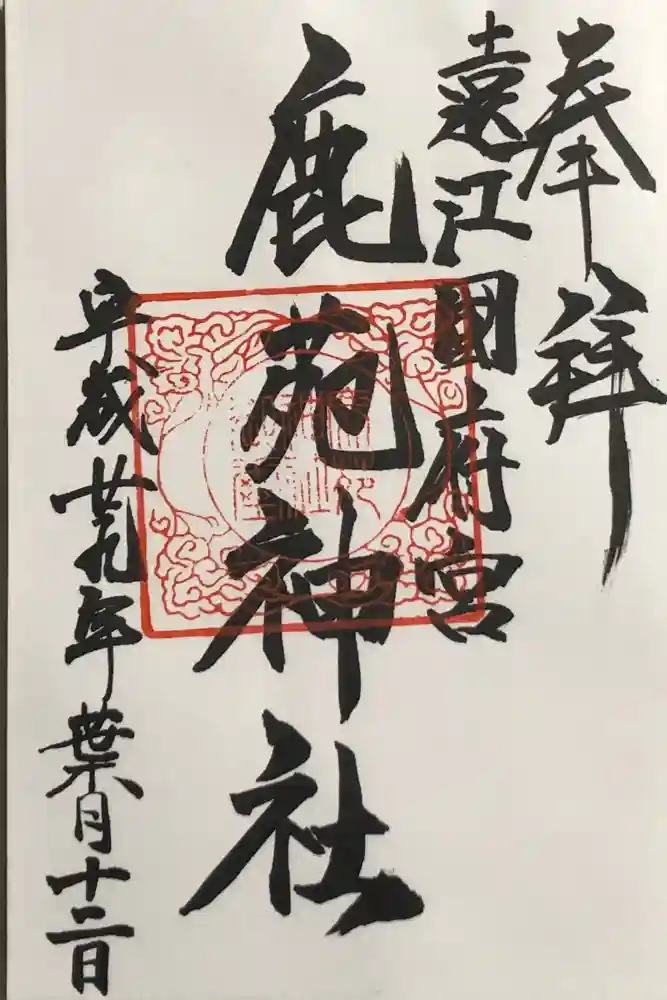 奉拝
遠江國府宮
鹿苑神社
平成廿九年葉月十二日